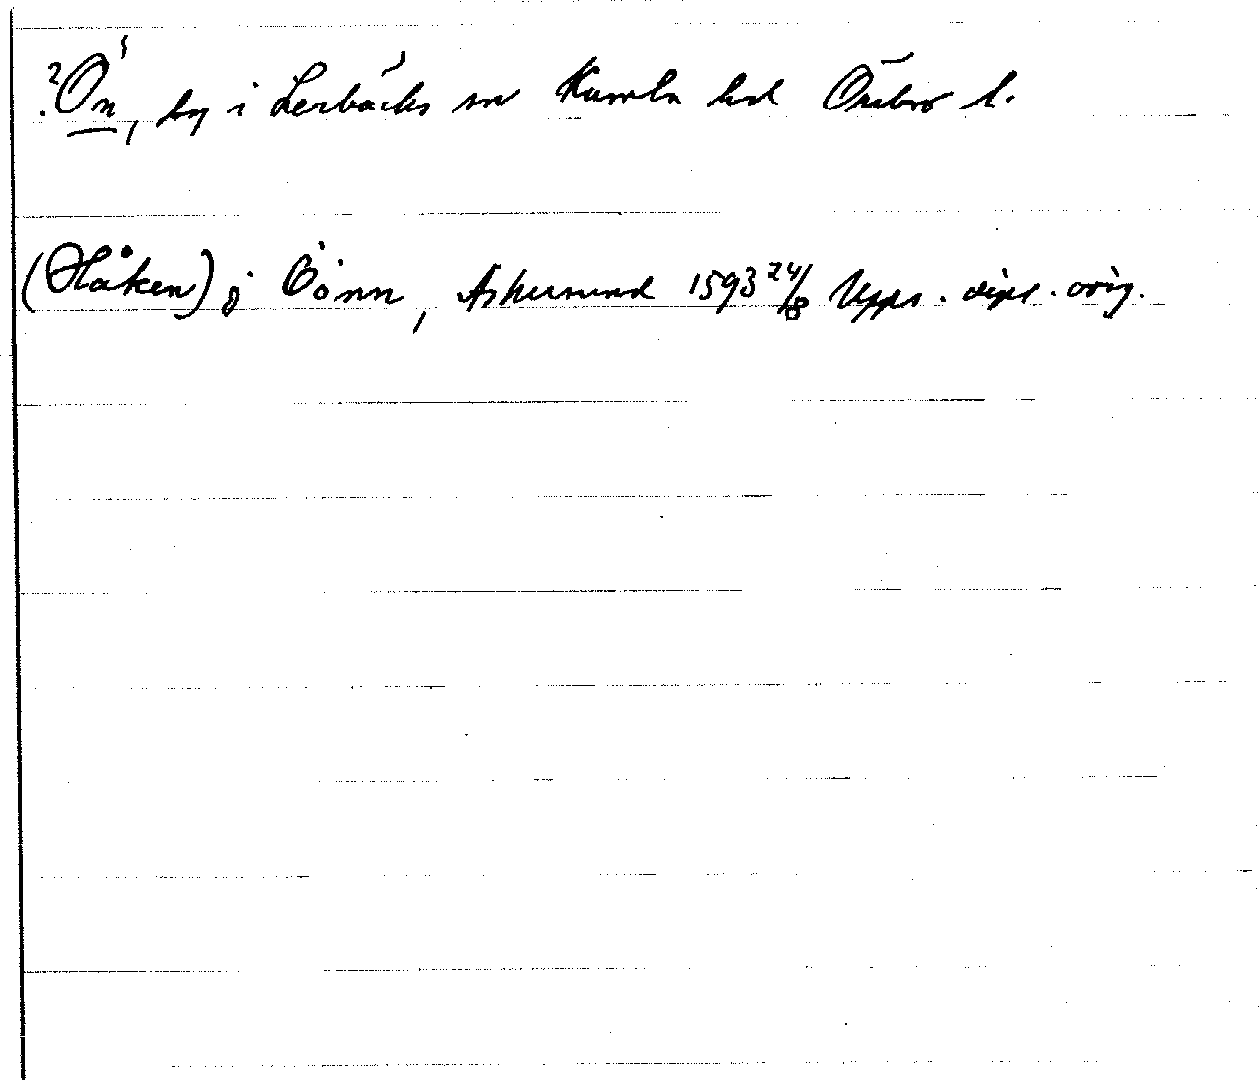 ?Ön, by i Lerbäcks sn Kumla hd Örebro l.
(Håken) j Öönn, Askersund 1593 24/8 Upps. dipl. orig.